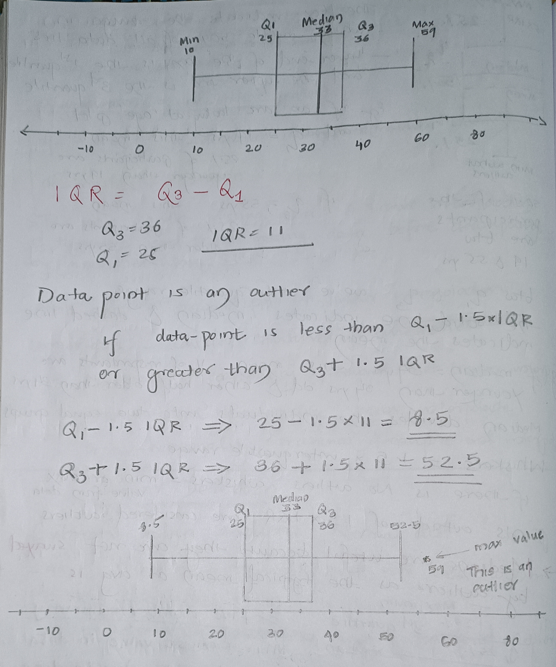 Min
10
Q1
25
Median
33
Q3
36
Max
59
-10 0 10 20 30 40 60 80
IQR = Q3 - Q1
Q3 = 36
Q1 = 25
IQR = 11
Data point is an outlier
if data-point is less than Q1 - 1.5 x IQR
or greater than Q3 + 1.5 IQR
Q1 - 1.5 IQR ⇒ 25 - 1.5 x 11 = 8.5
Q3 + 1.5 IQR ⇒ 36 + 1.5 x 11 = 52.5
8.5
Q1
25
Median
33
Q3
36
52.5
59
max value
This is an
outlier
-10 0 10 20 30 40 50 60 80